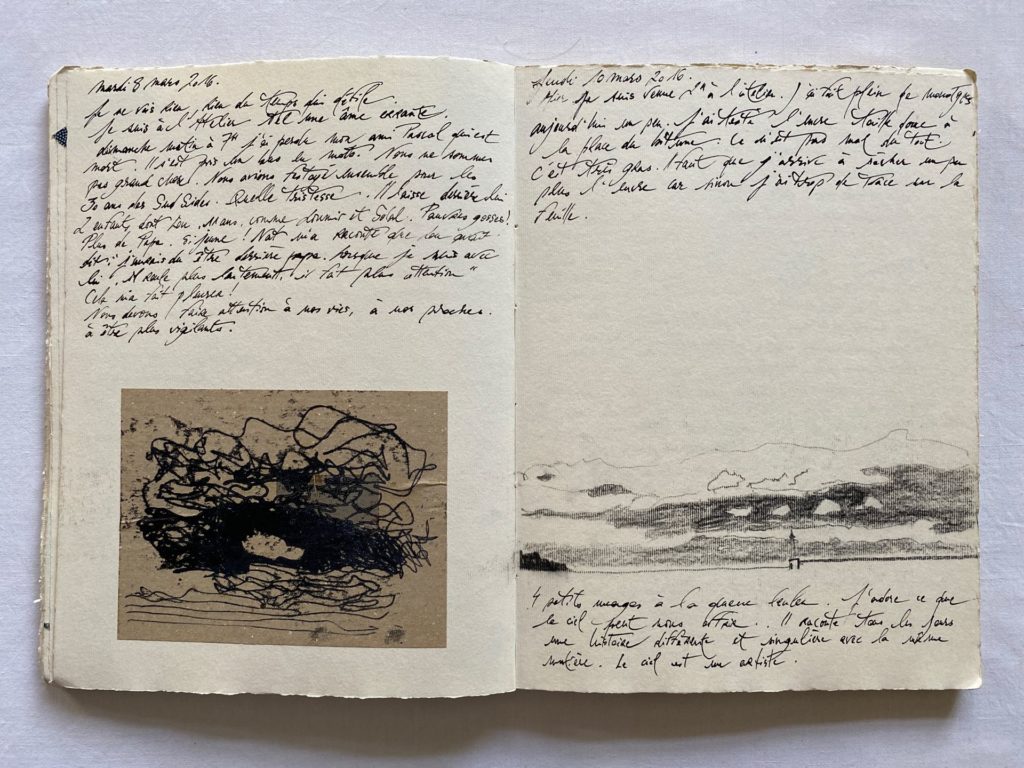 mardi 8 mars 2016.
Je ne vois rien, rien du temps qui défile.
Je suis à l'Atelier une âme errante.
dimanche matin à 7H j'ai perdu mon ami Pascal qui est
mort. Il s'est pris un bus en moto. Nous ne sommes
pas grand chose! Nous avions festoyé ensemble pour les
30 ans des Sud Sides. Quelle tristesse. Il laisse derrière lui
2 enfants, dont Lou, 11 ans, comme Loumir et Solal. Pauvres gosses!
Plus de Papa. Si jeune! Nat m'a raconté que Lou avait
dit: j'aurais du être derrière papa. Lorsque je suis avec
lui, il roule plus lentement, il fait plus attention"
Cela m'a fait pleurer!
Nous devons faire attention à nos vies, à nos proches.
à être plus vigilants.
Jeudi 10 mars 2016.
Hier je suis venue à l'atelier. J'ai fait plein de monotypes
aujourd'hui un peu. J'ai testé l'encre taille douce à
la place du bitume. Ce n'est pas mal du tout.
C'est très gras. Il faut que j'arrive à sécher un peu
plus l'encre car sinon j'ai trop de trace sur la
feuille.
4 petits nuages à la queue leuleu. J'adore ce que
le ciel peut nous offrir... Il raconte tous les jours
une histoire différente et singulière avec la même
matière. Le ciel est un artiste.